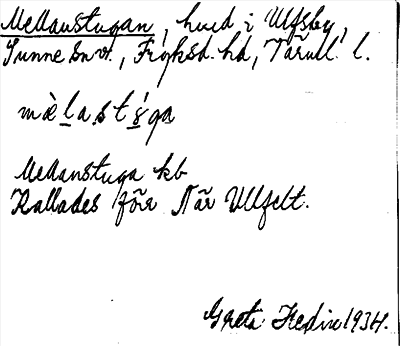 Mellanstugan, hus i Ulfsby,
Sunne sn., Fryksd. hd, Värml. l.
mæ̀l̠a s̠t ɣ́ga
Mellanstuga kb
Kallades förr När Ullfelt.
Greta Hedin 1934.